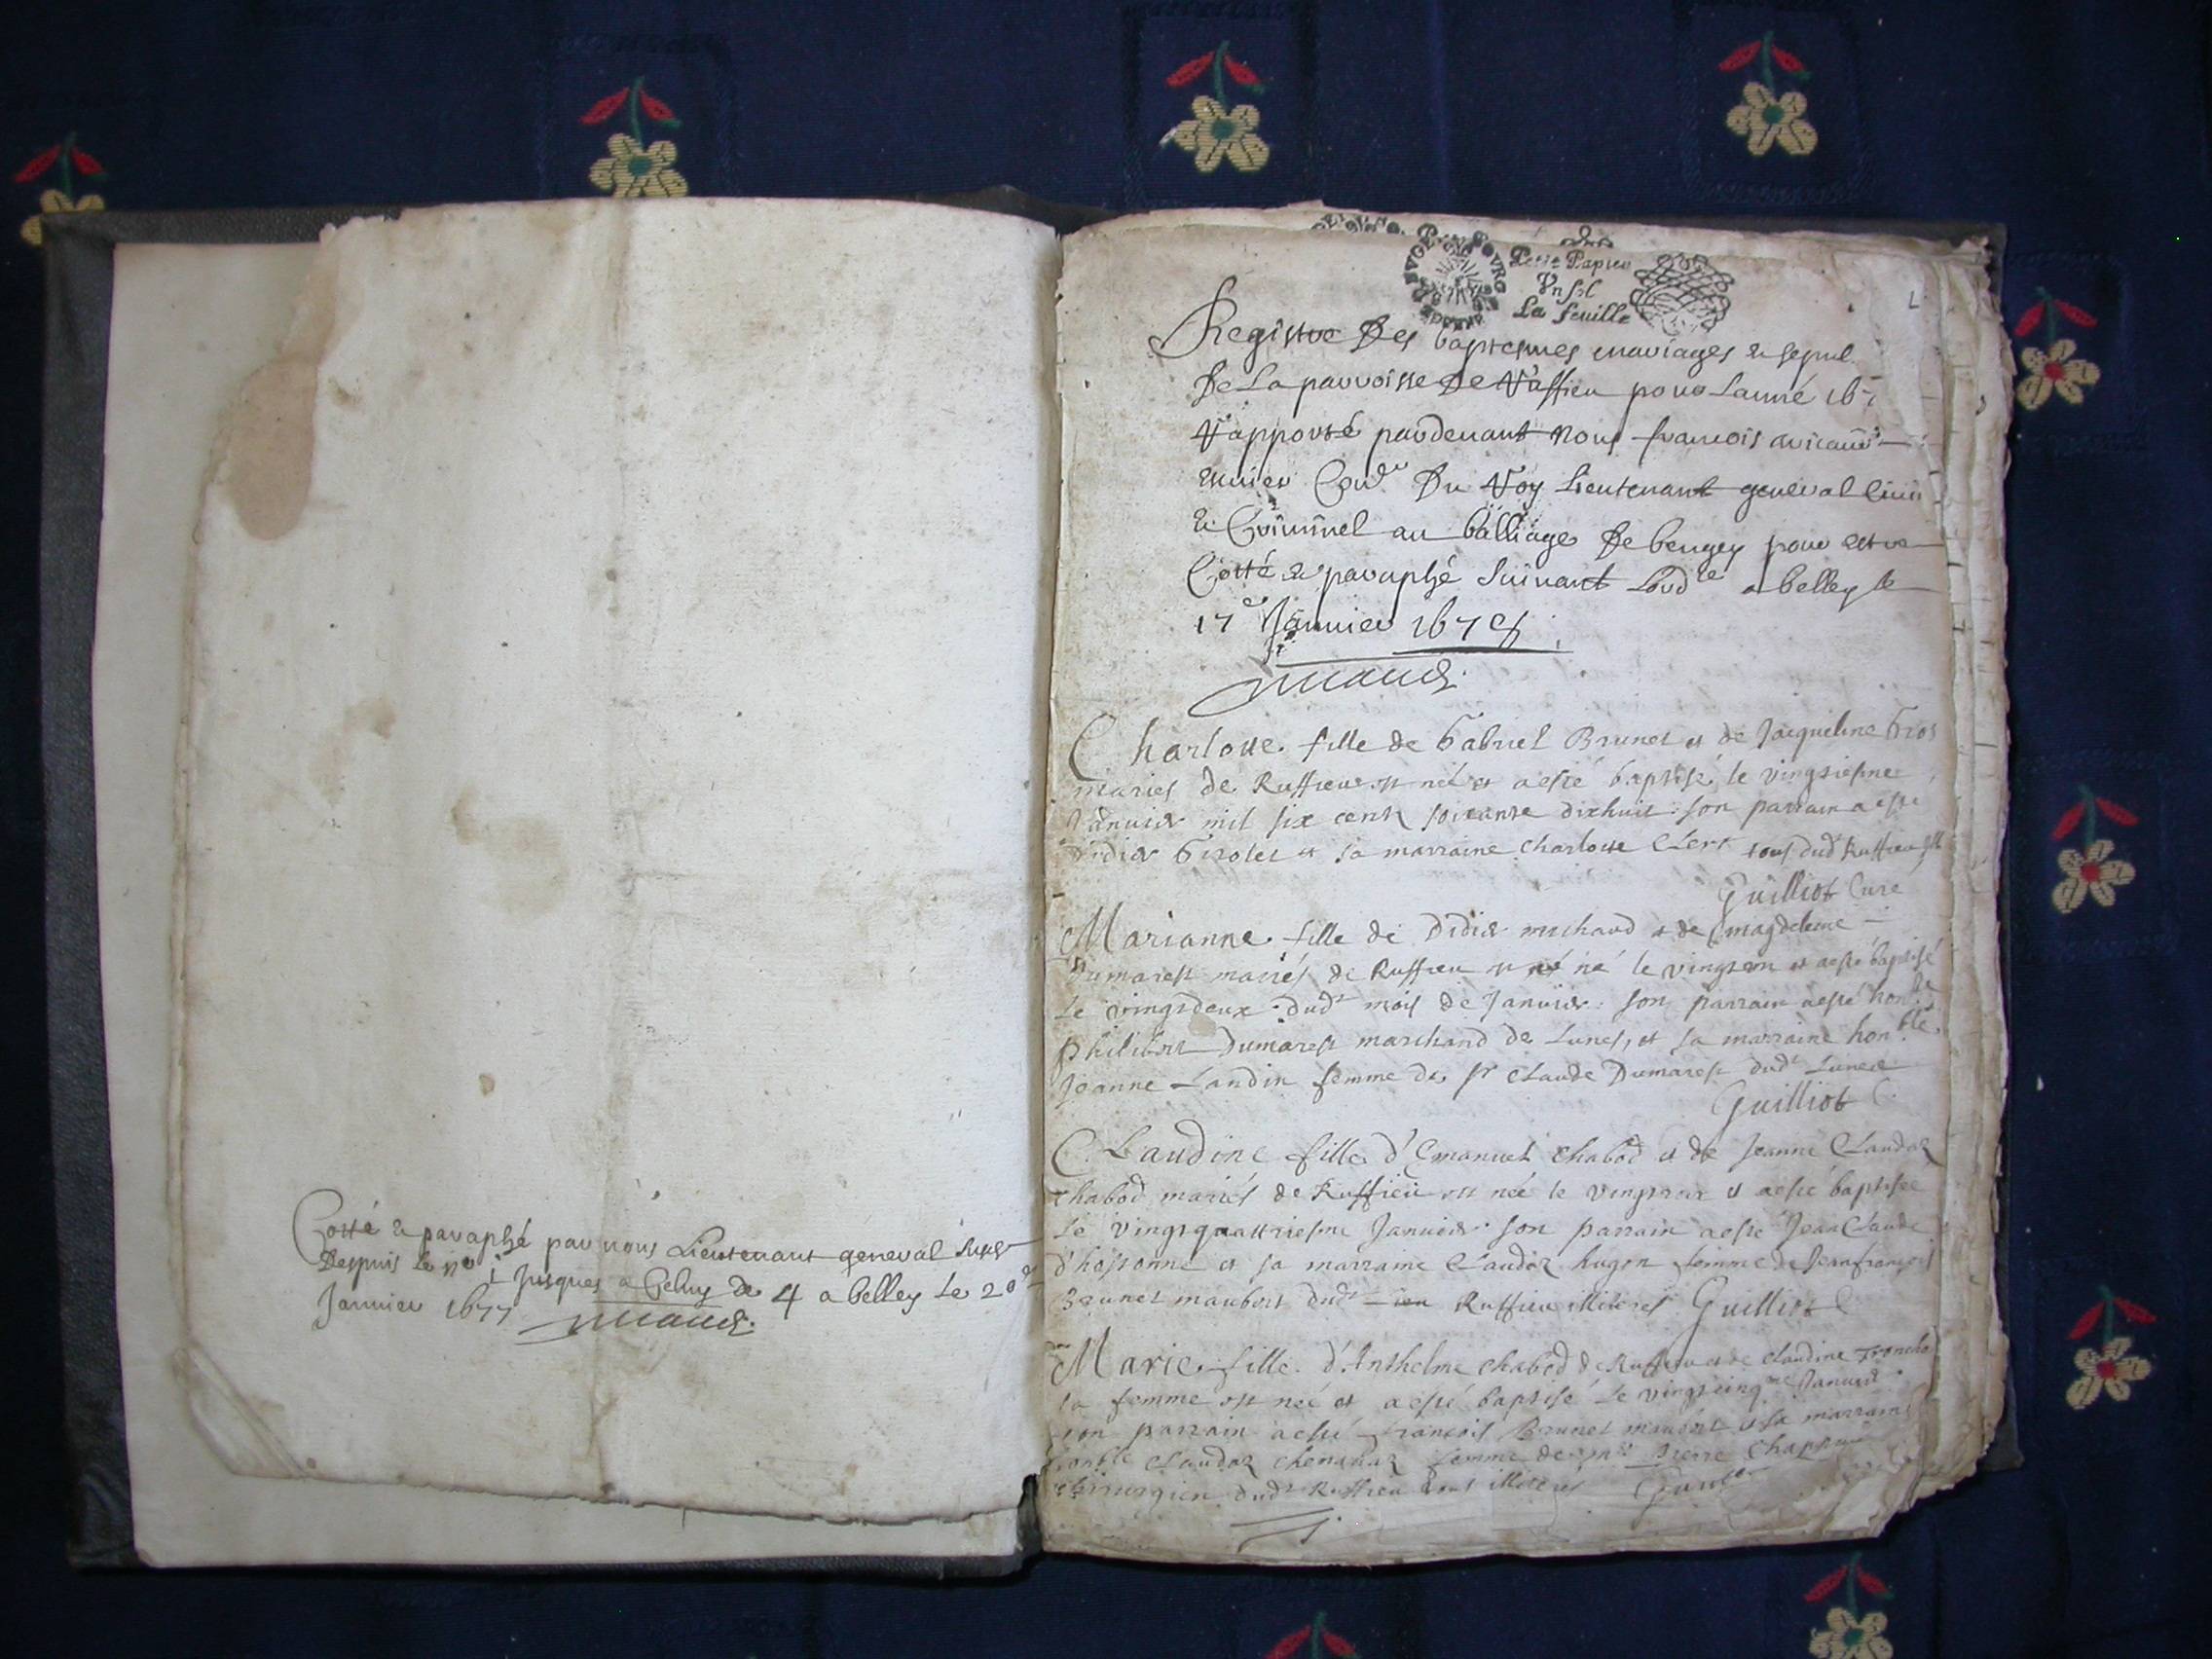 Cotté & paraphé par nous Lieutenant general susd
Despuis le n° 1 jusques a Celuy de 4 a belley le 20e
Janvier 1677
Petit Papier
Un sol
La feuille
Registre Des baptesmes mariages & sepul
De La parroisse De Ruffieu pour Lanné 167
Rapporté pardevant Nous francois
Du Roy Lieutenant general Civil
& Criminel au balliage De beugey pour estre
Cotté & paraphé suivant Lorde a belley le
17e Janvier 1678
Charlotte fille de Gabriel Brunet et de Jacqueline Gros
mariés de Ruffieu est neé et a esté baptisé le vingtiesme
Janvier mil six cents soixante dixhuit son parrain a esté
Didier et sa marraine Charlotte Clert tous dudt Ruffieu
Guilliot Curé
Marianne fille de Didier michaud et de magdeleine
Dumarest mariés de Ruffieu est né le vingt et un et a esté baptisé
Le vingtdeux dudt mois de Janvier son parrain a esté honble
philibert Dumarest marchand de Lunes, et sa marraine honble
Jeanne Landin femme de sr Claude Dumarest dudt Lunes
Guilliot C
Claudine fille d'Emanuel Chabod et de Jeanne Claudaz
Chabod mariés de Ruffieu est née le vingt et a esté baptisée
Le vingtquattriesme Janvier son parrain a esté Jean Claude
d'hostonne et sa marraine Claudaz hugon femme de Jeanfrançois
Brunet maubert dudt Ruffieu illiterés Guilliot C
Marie fille d'Anthelme Chabod de Ruffieu et de Claudine
sa femme est neé et a esté baptisé le vingtcinqme Janvier
son parrain a esté francois Brunet maubert et sa marraine
honble Claudaz femme de Pierre
chirurgien dudt Ruffieu tous illiterés